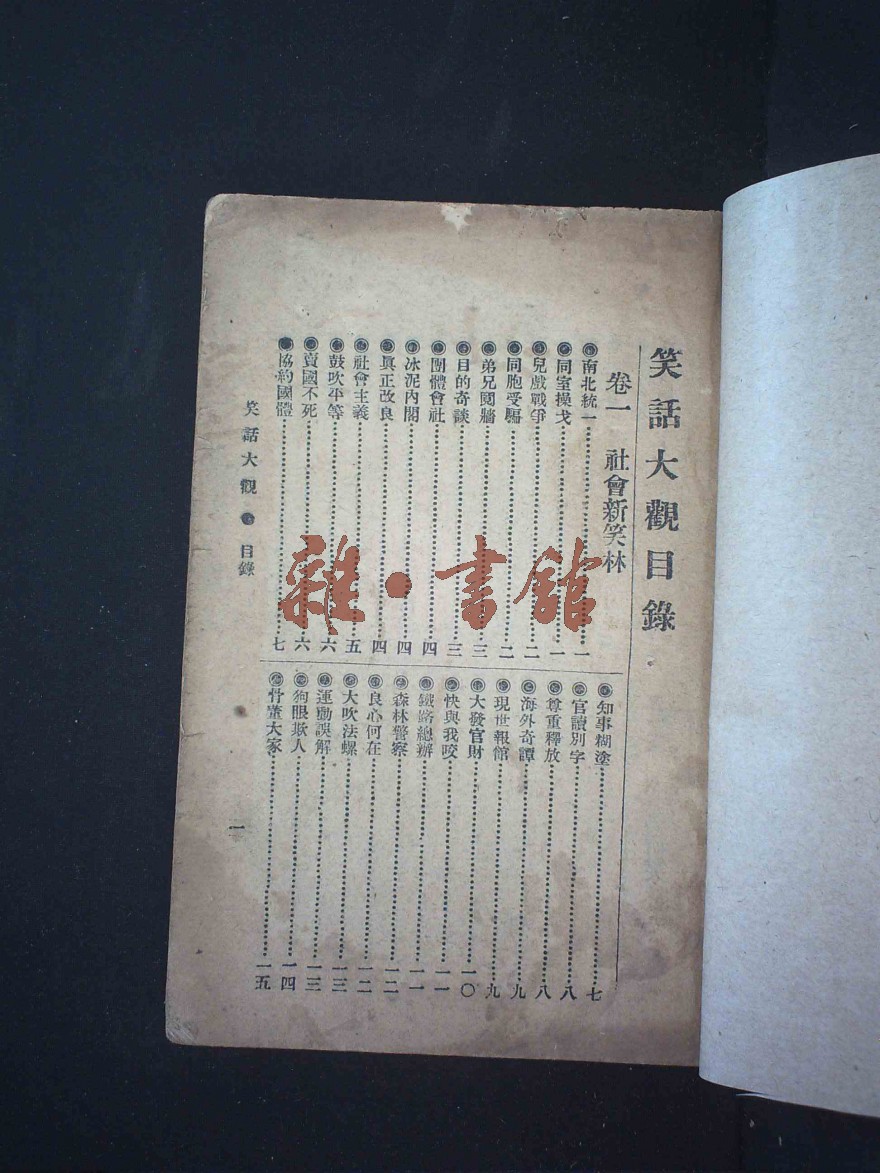 笑話大觀目錄
卷一　社會新笑林
南北統一⋯⋯一
同室操戈⋯⋯一
兒戲戰爭⋯⋯二
同胞受騙⋯⋯二
弟兄鬩牆⋯⋯三
目的奇談⋯⋯三
團體會社⋯⋯四
冰泥內閣⋯⋯四
眞正改良⋯⋯四
社會主義⋯⋯五
鼓吹平等⋯⋯六
賣國不死⋯⋯六
協約國體⋯⋯七
知事糊塗⋯⋯七
官讀別字⋯⋯八
尊重釋放⋯⋯八
海外奇譚⋯⋯九
現世報館⋯⋯九
大發官財⋯⋯一〇
快與我咬⋯⋯一一
鐵路總辦⋯⋯一一
森林警察⋯⋯一二
良心何在⋯⋯一二
大吹法螺⋯⋯一三
運動誤解⋯⋯一三
狗眼欺人⋯⋯一四
骨董大家⋯⋯一五
笑話大觀　目錄
一
雜·書館